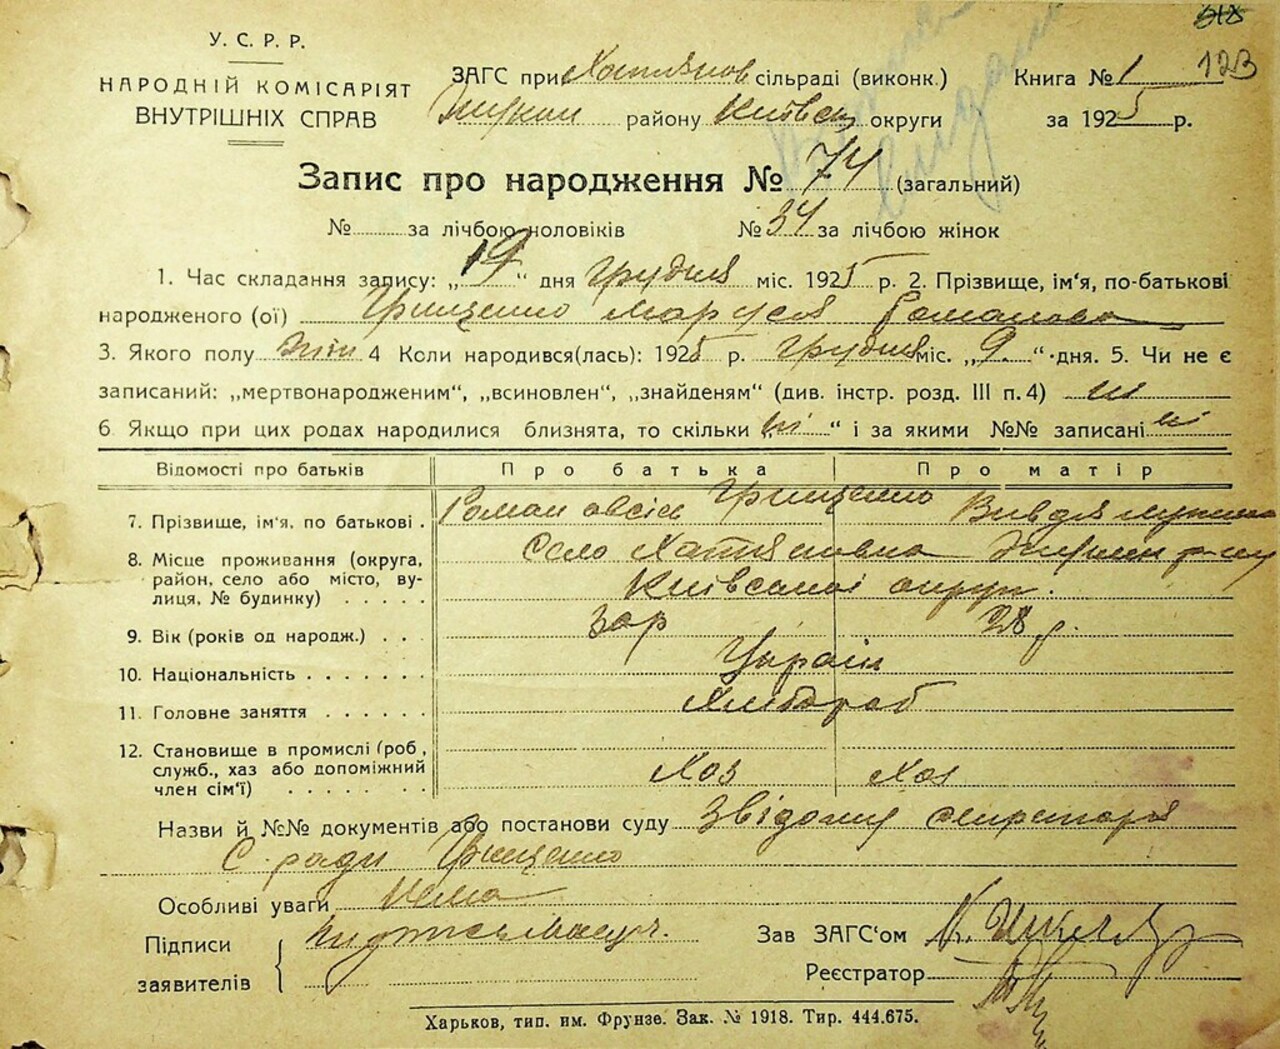 123
У. С. Р. Р.
НАРОДНІЙ КОМІСАРІЯТ
ВНУТРІШНІХ СПРАВ
ЗАГС при Хатянов сільраді (виконк.) Книга № 1
району Київськ округи за 1925 р.
Запис про народження № 74 (загальний)
№ за лічбою чоловіків № 34 за лічбою жінок
1. Час складання запису: „19“ дня Грудня міс. 1925 р. 2. Прізвище, ім'я, по-батькові
народженого (ої) Грищенко Маруся Романовна
3. Якого полу жін 4 Коли народився(лась): 1925 р. Грудня міс. „9“ дня. 5. Чи не є
записаний: „мертвонародженим“, „всиновлен“, „знайденям“ (див. інстр. розд. III п. 4) ні
6. Якщо при цих родах народилися близнята, то скільки „ні“ і за якими №№ записані ні
Відомості про батьків Про батька Про матір
7. Прізвище, ім'я, по батькові . Роман Овсій Грищенко Вивдя
8. Місце проживання (округа,
район, село або місто, ву-
лиця, № будинку) . . . . . Село Хатяновка
Київської округ.
9. Вік (років од народж.) . . . 30р 28 р.
10. Національність . . . . . . . Україн
11. Головне заняття . . . . . . Хлібороб
12. Становище в промислі (роб.,
служб., хаз або допоміжний
член сім'ї) . . . . . . Хоз Хоз
Назви й №№ документів або постанови суду Звідому секретаря
С. ради Грищенко
Особливі уваги Нема
Підписи
заявителів
Зав ЗАГС'ом
Реєстратор
Харьков, тип. им. Фрунзе. Зак. № 1918. Тир. 444.675.